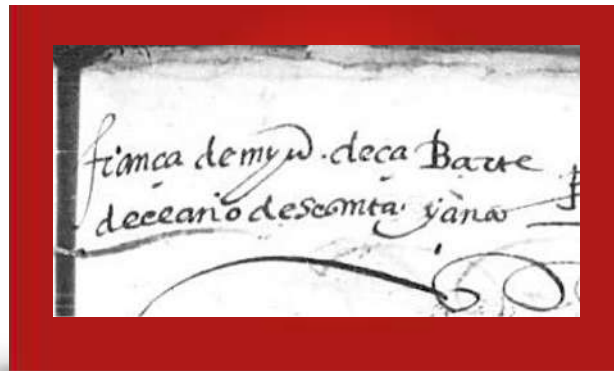 fiança de myn. deça Barte
deceano de Scomta. yana